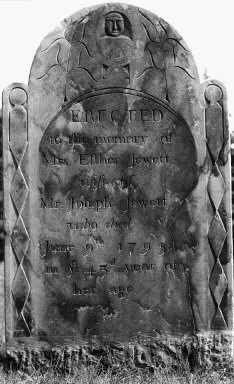 ERECTED
to the memory of
Mrs. Esther Jewett
wife of
Mr. Joseph Jewett
who died
June 9th 179
in ye 43d year of
her age